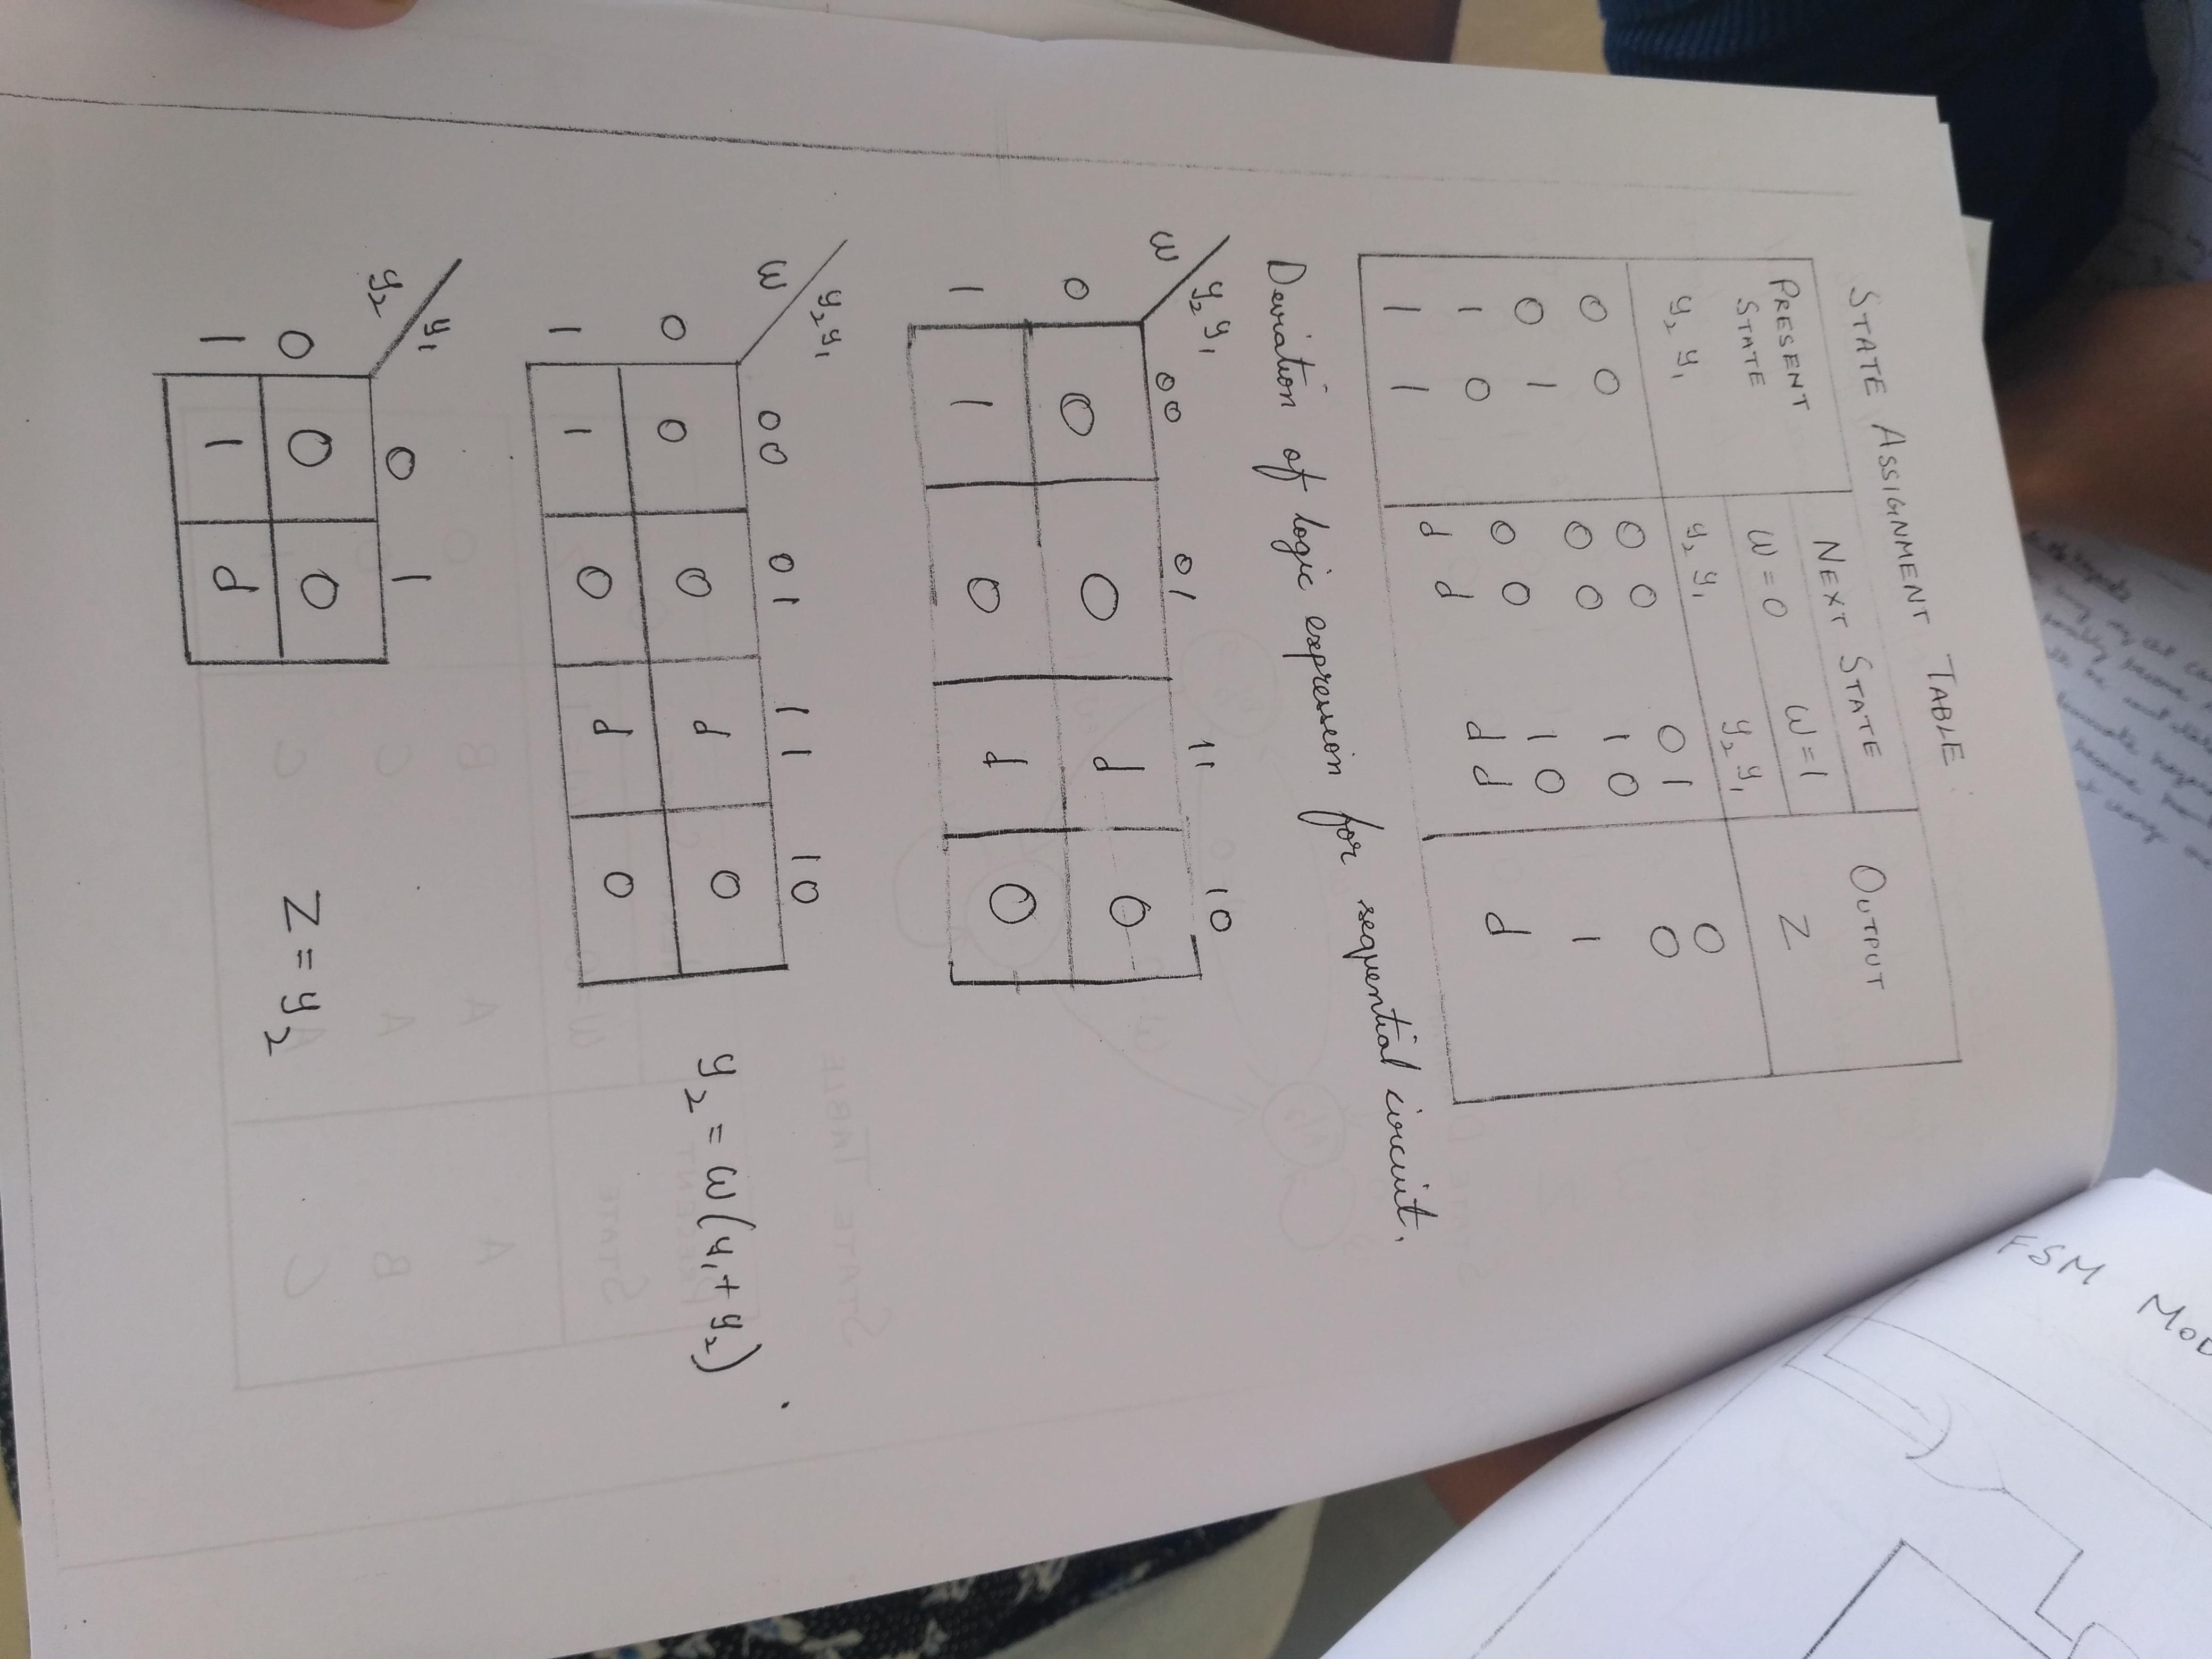 STATE ASSIGNMENT TABLE
PRESENT STATE NEXT STATE OUTPUT
W=0 W=1 Z
y2 y1 y2 y1 y2 y1
0 0 0 0 0 1 0
0 1 0 0 1 0 0
1 0 0 0 1 0 1
1 1 d d d d d
Derivation of logic expression for sequential circuit.
w y2 y1
00 01 11 10
0 0 0 d 0
1 1 0 d 0
w y2 y1
00 01 11 10
0 0 0 d 0
1 1 0 d 0
y2 = w(y1+y2)
y2 y1
0 1
0 0 0
1 1 d
Z = y2
FSM MOD